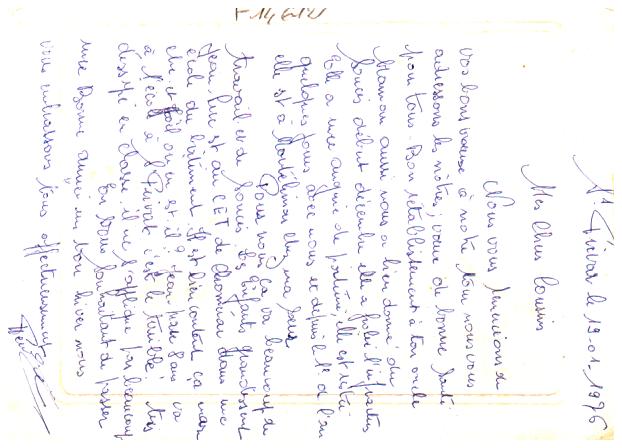 St Privat le 19-01-1976
Mes chers Cousins
Nous vous remercions de
vos bons voeux à notre tour nous vous
adressons les nôtres, voeux de bonne santé
pour tous - Bon rétablissement à ton oncle
Maman aussi nous a bien donné du
soucis début décembre elle a failli l'infarctus
Elle a une angine de poitrine, elle est restée
quelques jours avec nous et depuis le 1er de l'an
elle est à Montélimar chez ma soeur
Pour nous ça va beaucoup de
travail et de soucis. Les Enfants grandissent
Jean Luc est au CET de Chomérac dans une
école du bâtiment Il est bien content ça marche
et on en est 8 ans va
à l'école à St Privat c'est le terrible, très
dissipé en classe il ne s'applique pas beaucoup
En vous souhaitant de passer
une Bonne année un bon hiver nous
vous embrassons tous affectueusement